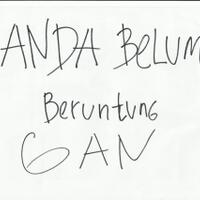 ANDA BeLUM
Beruntung
GAN